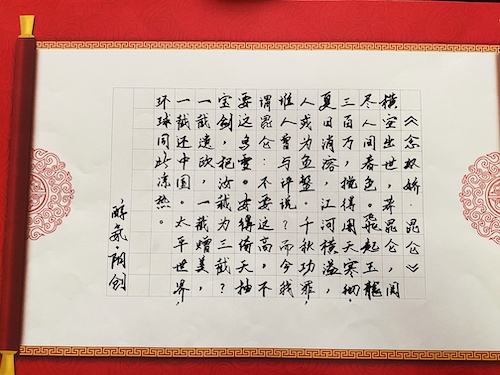 《念奴娇·昆仑》
横空出世，莽昆仑，阅
尽人间春色。飛起玉龍
三百万，搅得周天寒彻。
夏日消溶，江河横溢，
人或为鱼鳖。千秋功罪，
谁人曾与评说？而今我
谓昆仑：不要这高，不
要这多雪。安得倚天抽
宝剑，把汝裁为三截？
一截遗欧，一截赠美，
一截还中国。太平世界，
环球同此凉热。